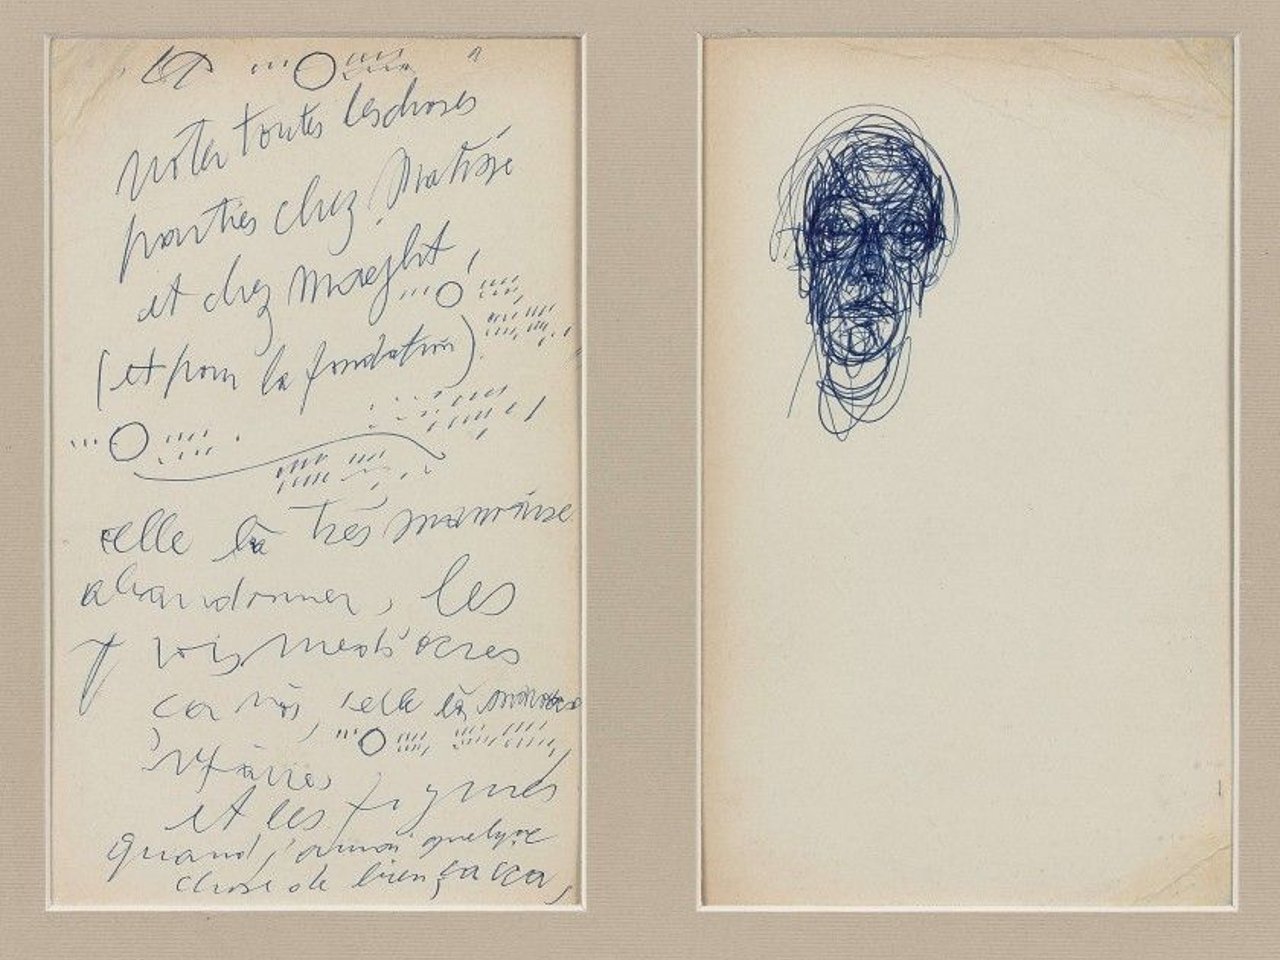 noter toutes les choses
parties chez Matisse
et chez Maeght,
(et pour la fondation)
celle là très mauvaise
abandonner, les
trois médiocres
celle là
refaire,
et les figures
quand j'aurai quelque
chose de bien,